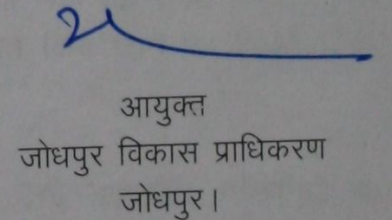 आयुक्त
जोधपुर विकास प्राधिकरण
जोधपुर।